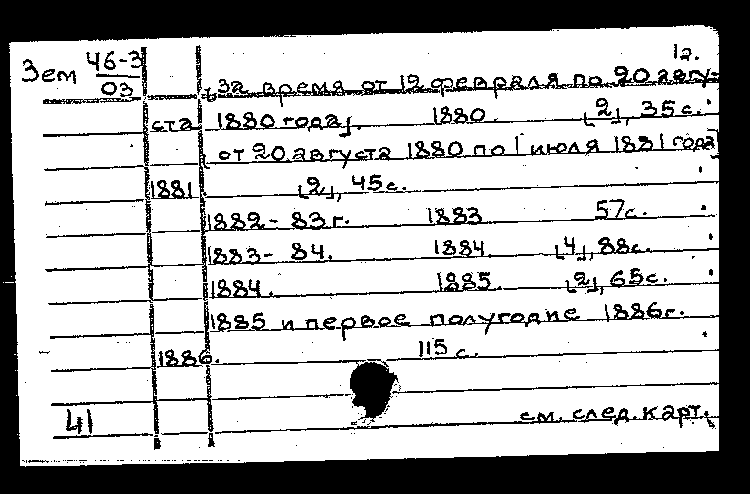 1а.
Зем 46-3
03
[за время от 12 февраля по 20 авгу-
ста 1880 года]. 1880. [2], 35 с.
[от 20 августа 1880 по 1 июля 1881 года]
1881 [2], 45 с.
1882 - 83 г. 1883 57 с.
1883 - 84. 1884. [4], 88 с.
1884. 1885. [2], 65 с.
1885 и первое полугодие 1886 г.
1886. 115 с.
41 см. след. карт.